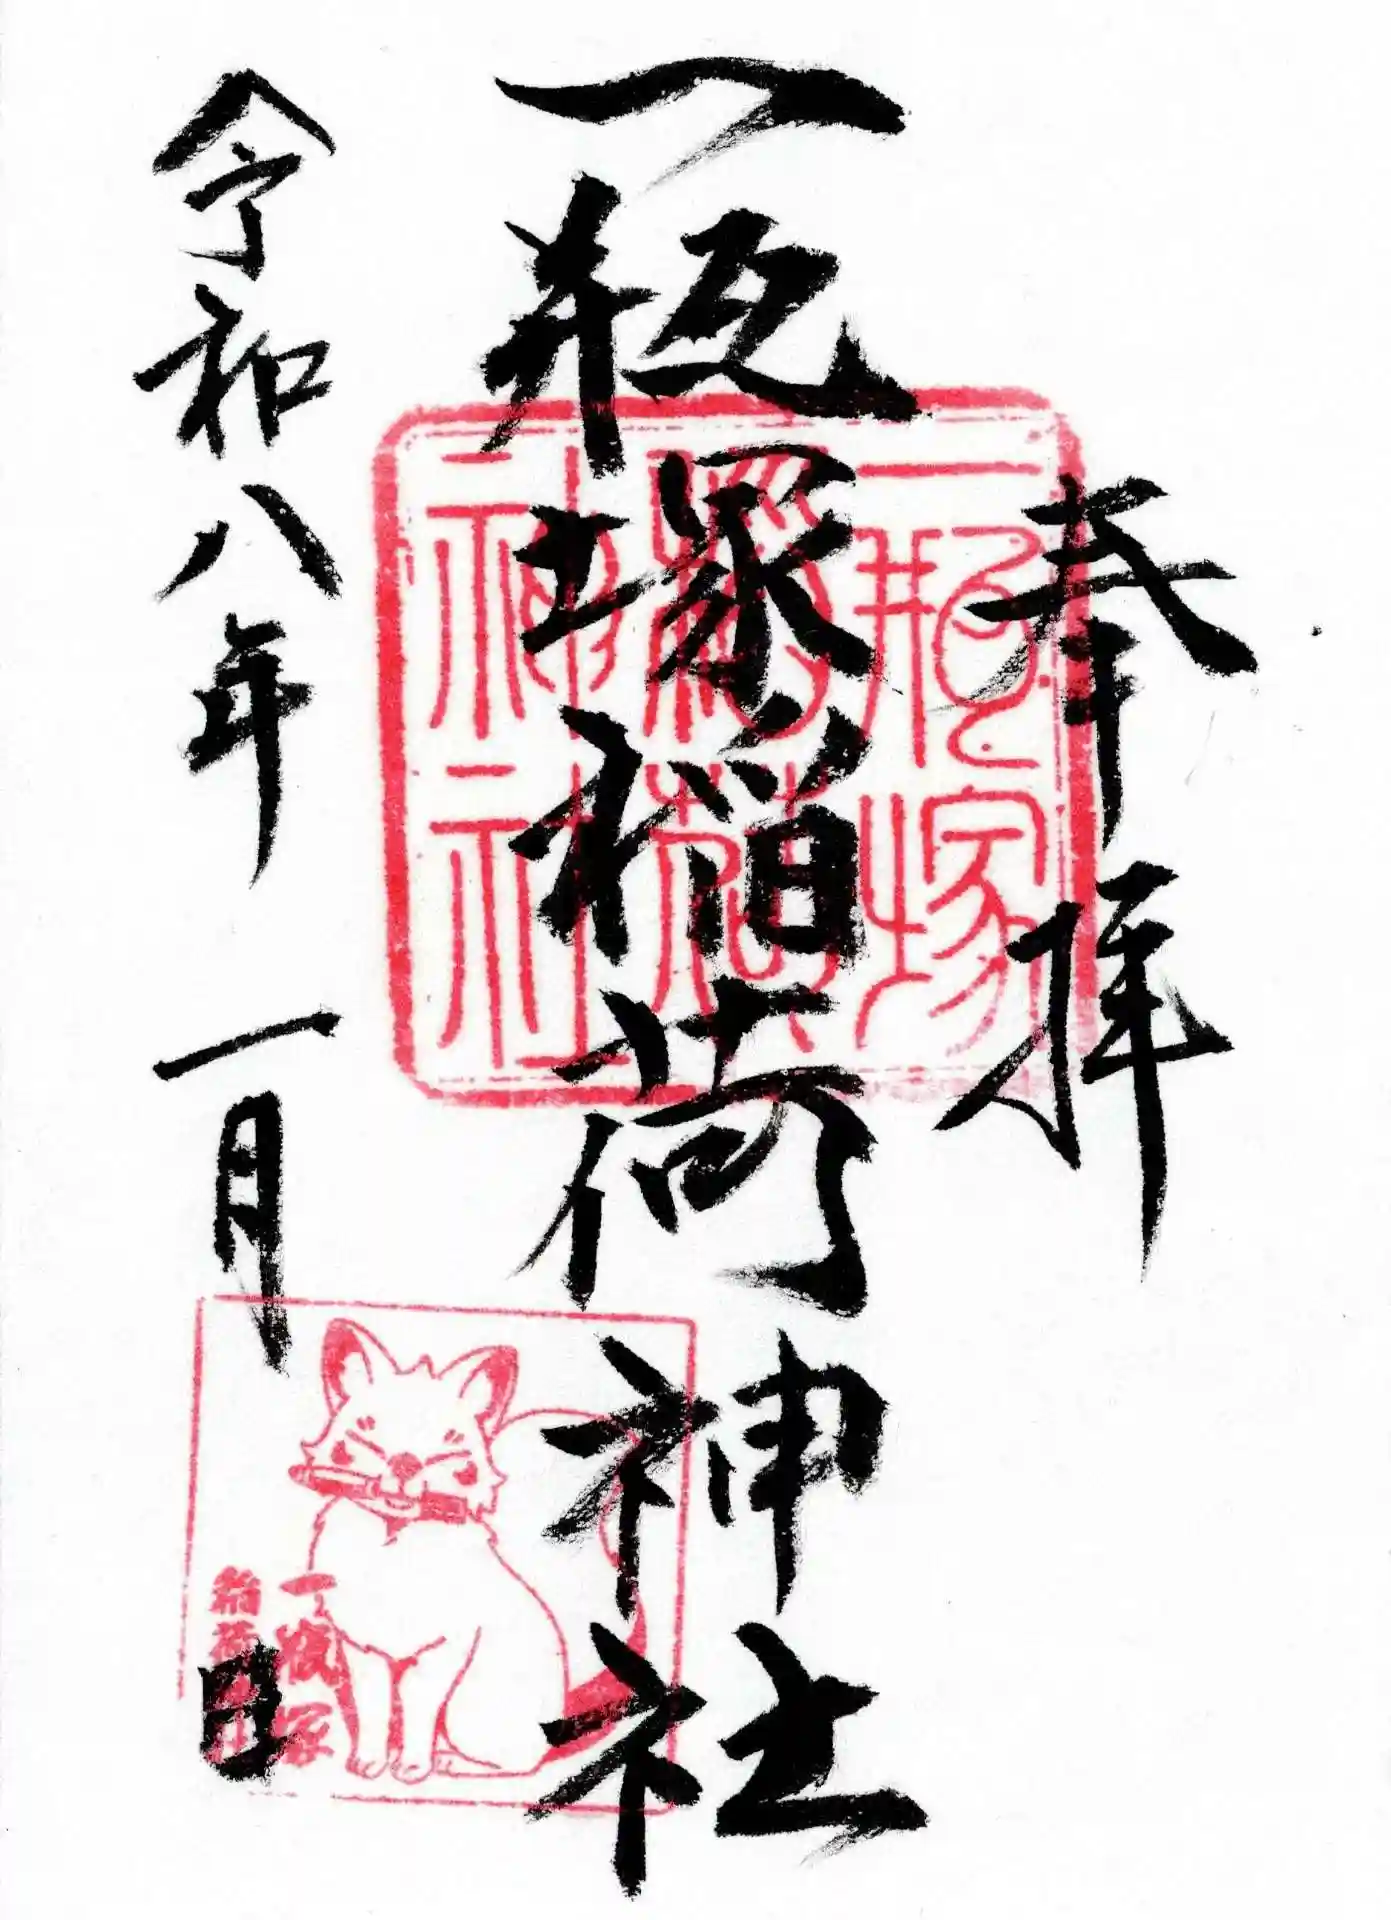 奉拝
一瓶塚稲荷神社
令和八年 一月 日
一瓶塚
稲荷神社
一瓶塚
稲荷神社